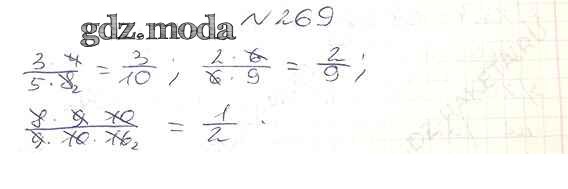 gdz.moda №269
3·4/5·8₂ = 3/10; 2·6/6·9 = 2/9;
8·9·10/9·10·16₂ = 1/2.
GDZ-RAKETA.RU